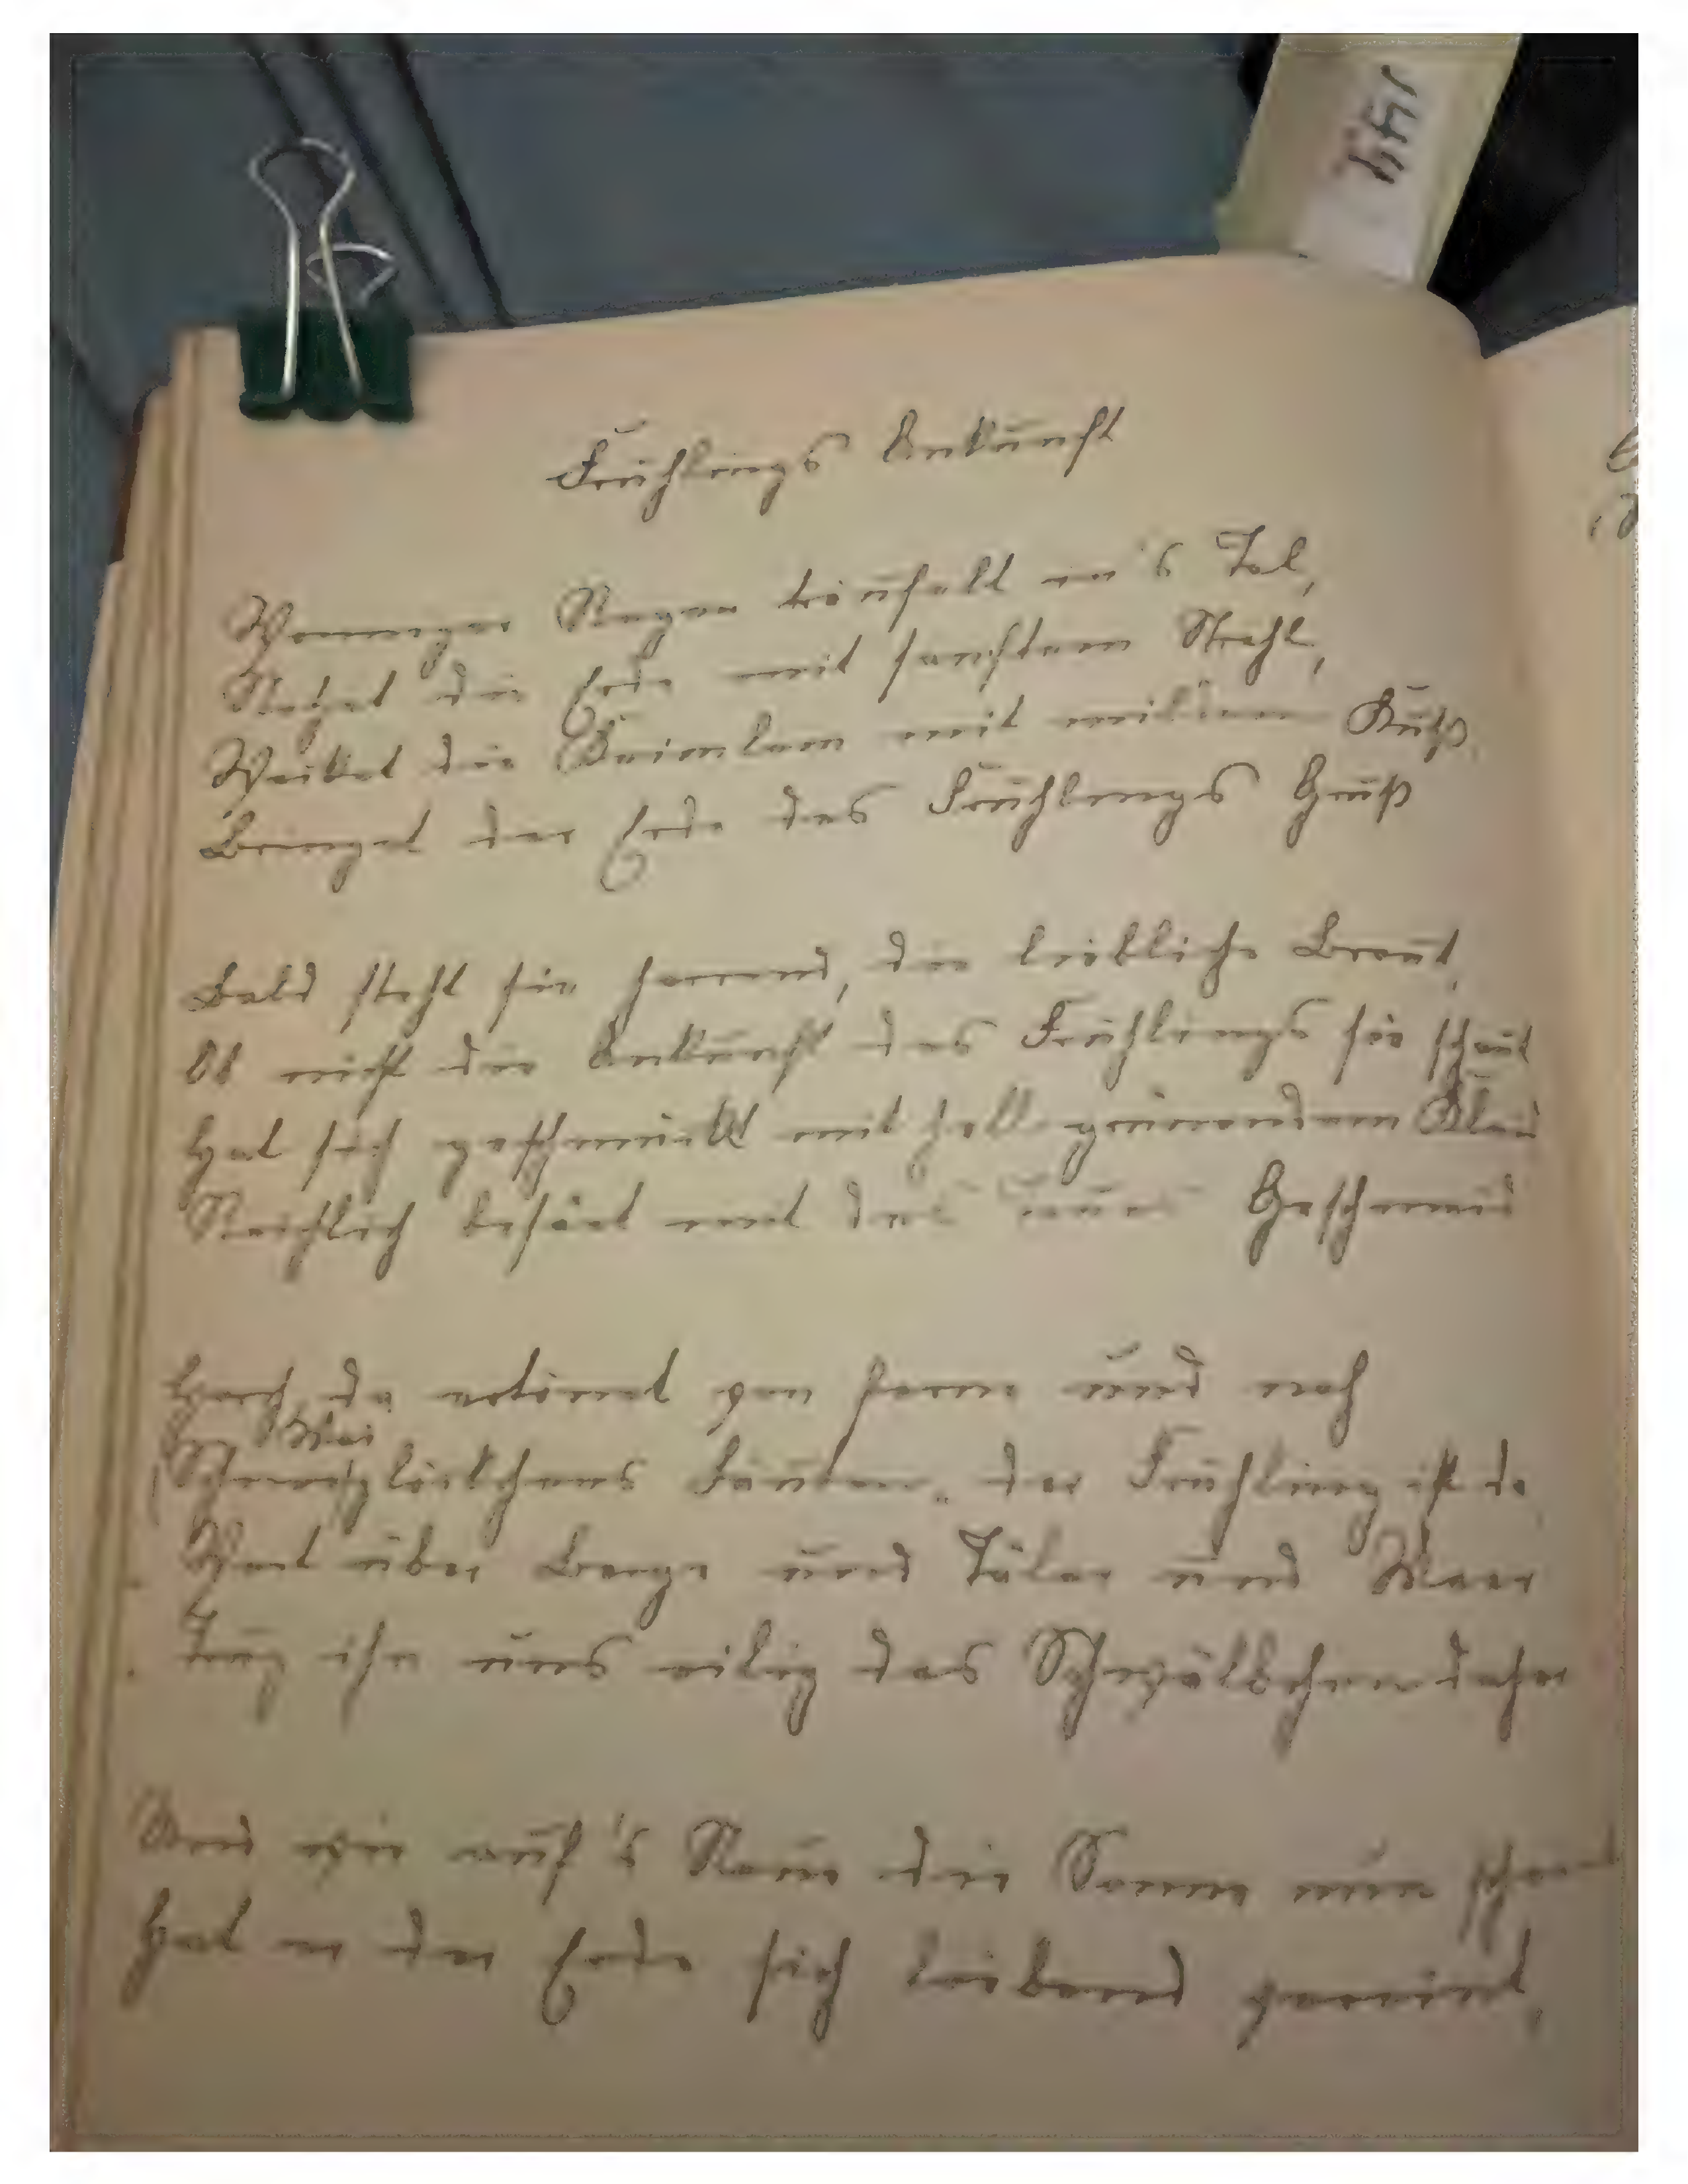 Frühlings Ankunft
Wonniger Regen träufelt in's Tal,
Netzet die Erde mit sanftem Strahl,
Wecket die Keimlein mit mildem Kuß,
Bringet der Erde des Frühlings Gruß
Bald steht sie harrend, die liebliche Braut,
Ob nicht die Ankunft des Frühlings sie schaut
Hat sich geschmückt mit hell grünendem Kleid
Reichlich besäet mit Geschmeid
Horch, da ertönet von fern und nah
Mai
Schneeglöckchens Läuten, der Frühling ist da
Weit über Berge und Täler und Meer
Trug ihn uns eilig das Schwälbchen daher
Und wie auf's Neue die Sonne nun scheint
Hat er der Erde sich liebend geeint,